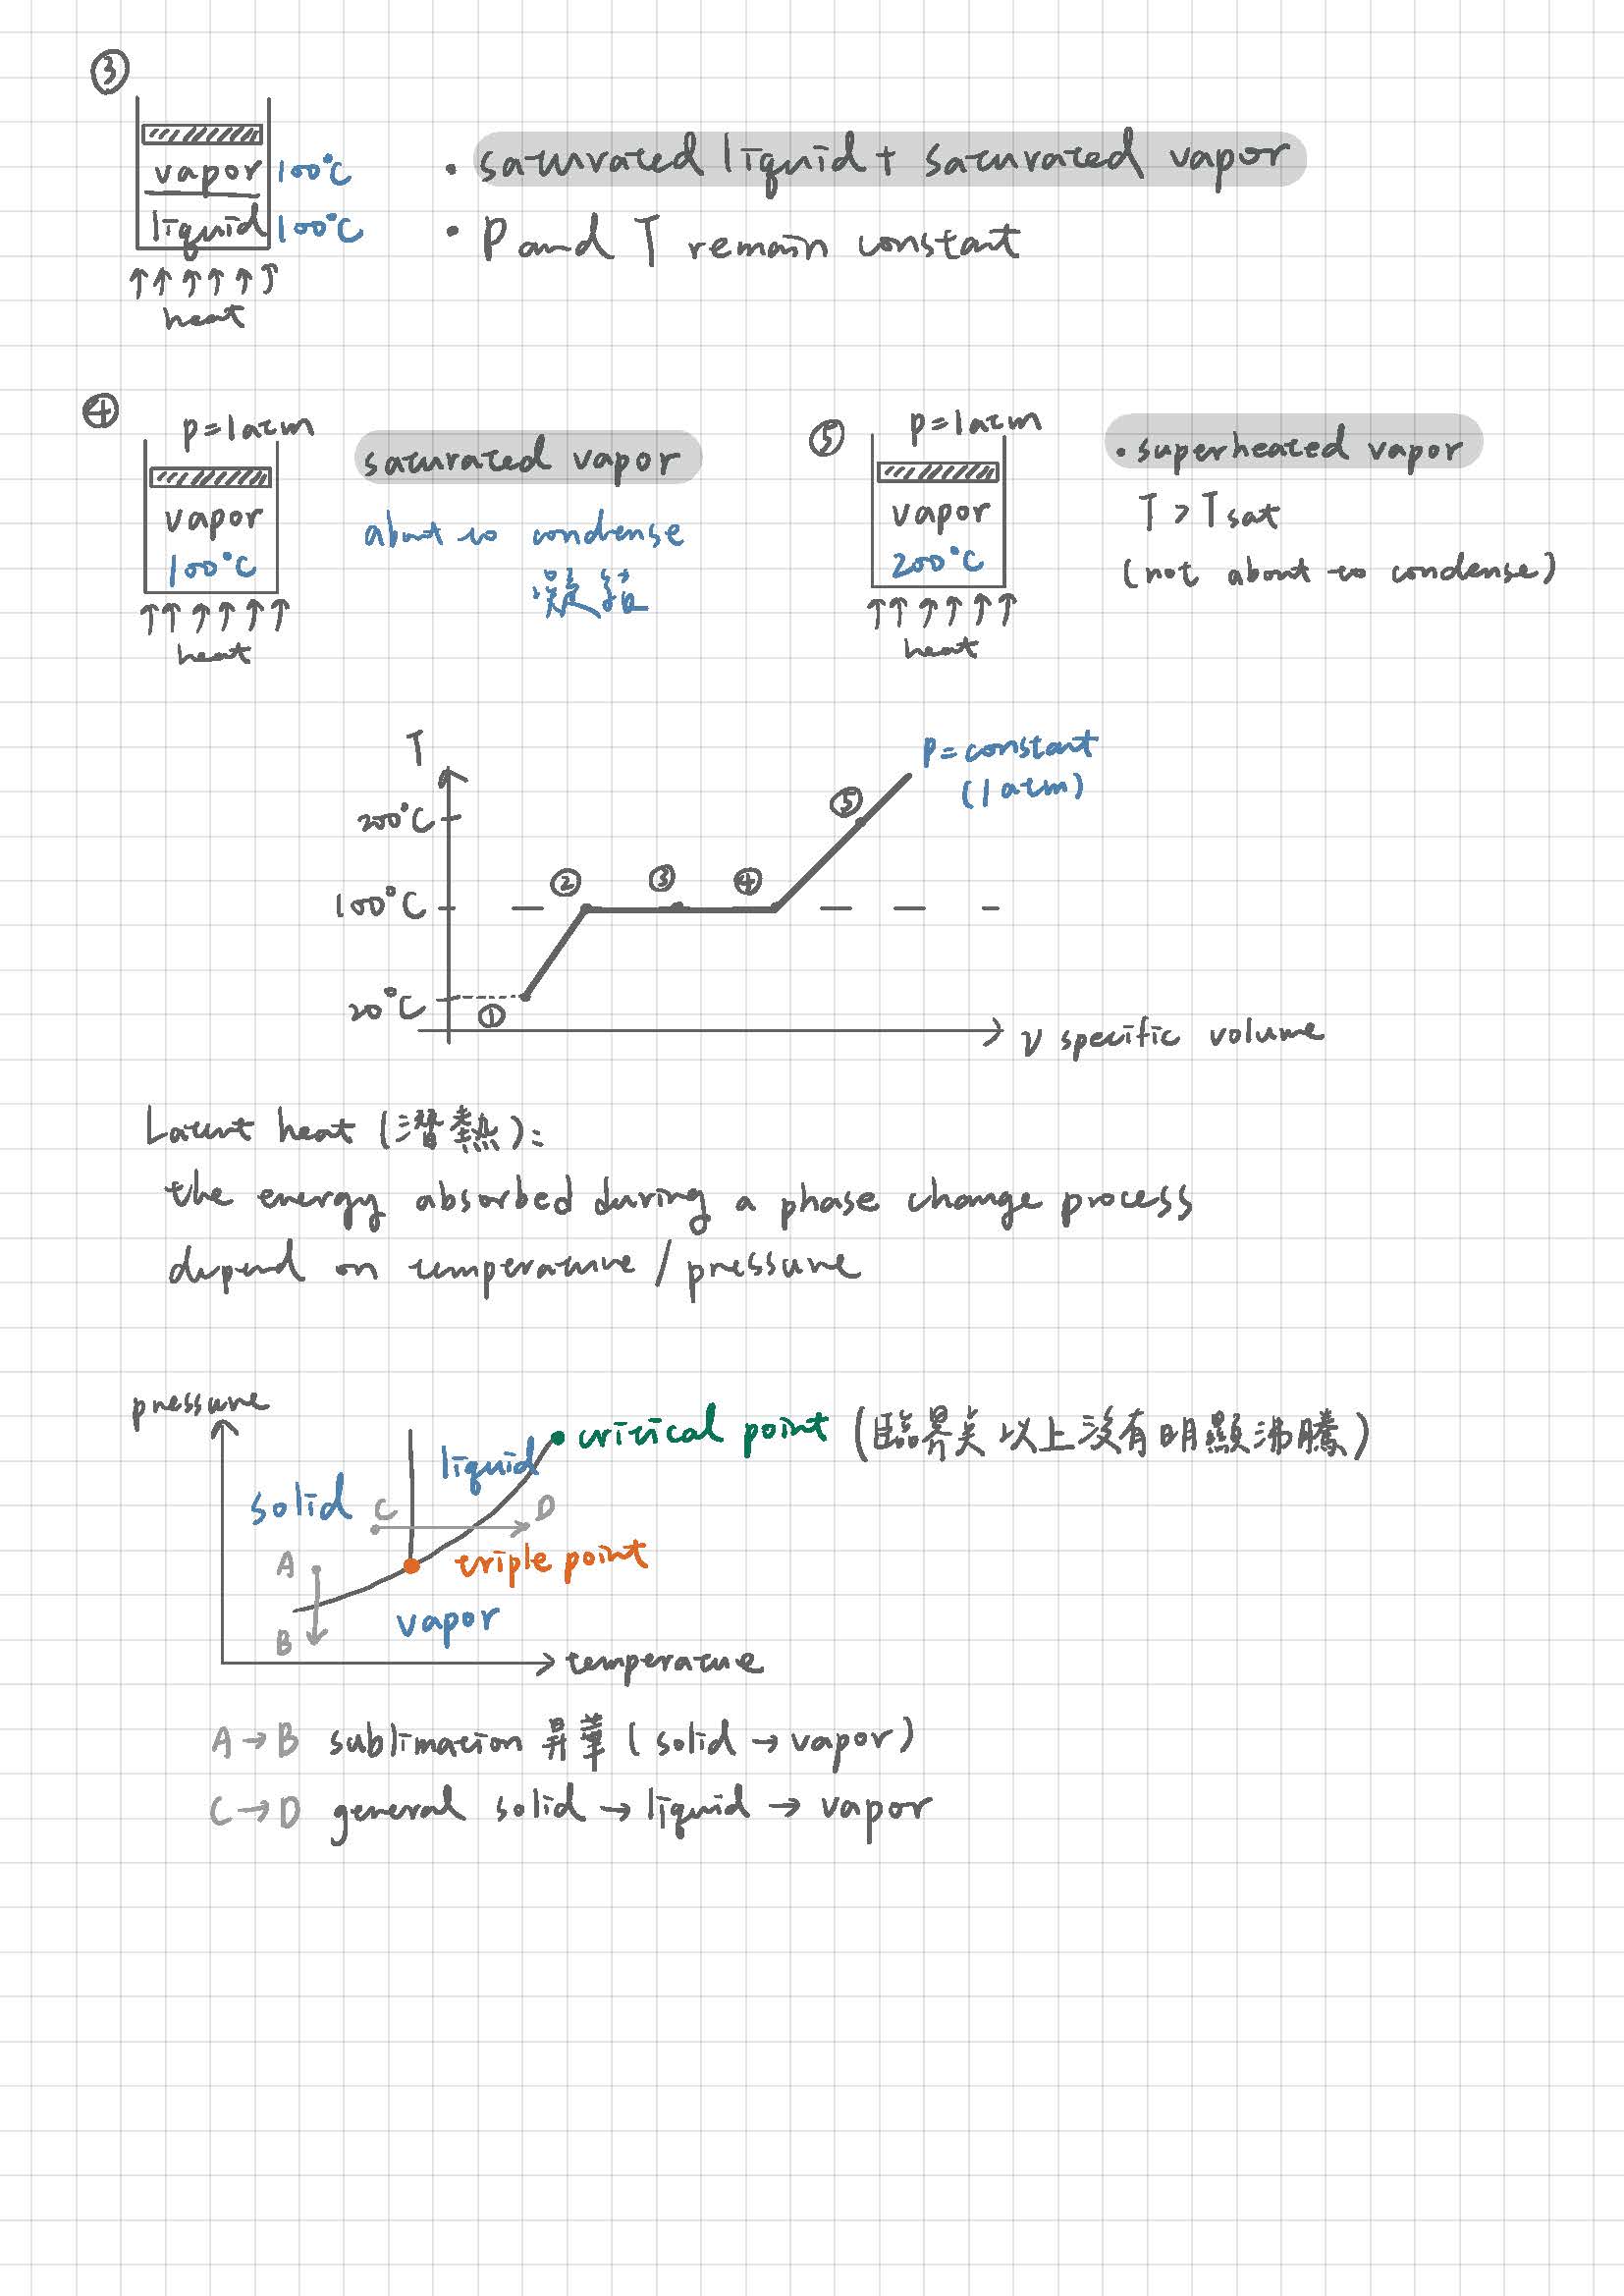 ③
vapor 100°C
liquid 100°C
heat
• saturated liquid + saturated vapor
• P and T remain constant
④
P=1atm
vapor
100°C
heat
saturated vapor
about to condense
凝結
⑤
P=1atm
vapor
200°C
heat
• superheated vapor
T > Tsat
(not about to condense)
T
P=constant
(1 atm)
200°C
⑤
100°C
② ③ ④
20°C
①
ν specific volume
Latent heat (潛熱):
the energy absorbed during a phase change process
depend on temperature / pressure
pressure
critical point (臨界点以上沒有明顯沸騰)
liquid
solid
C
D
A
triple point
B
vapor
temperature
A → B sublimation 昇華 (solid → vapor)
C → D general solid → liquid → vapor